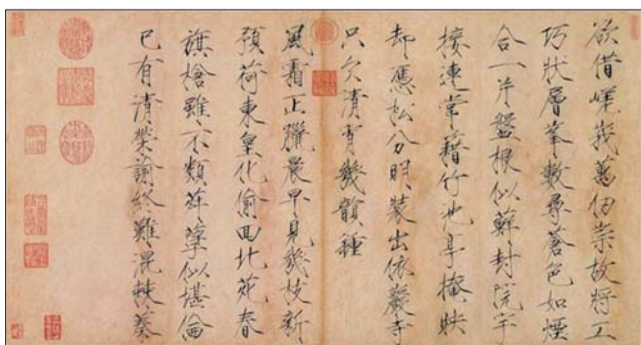 欲借嵯峩萬仞崇故將工
巧狀層峯數尋蒼色如煙
合一片盤根似蘚封院宇
接連常藉竹池亭掩映
却憑松分明裝出依巖寺
只欠清宵幾韻鍾
風霜正臘晨早見幾枝新
預荷東皇化偷囬北苑春
旗槍雖不類荈蘖似堪倫
已有清榮諭終難混棘蓁